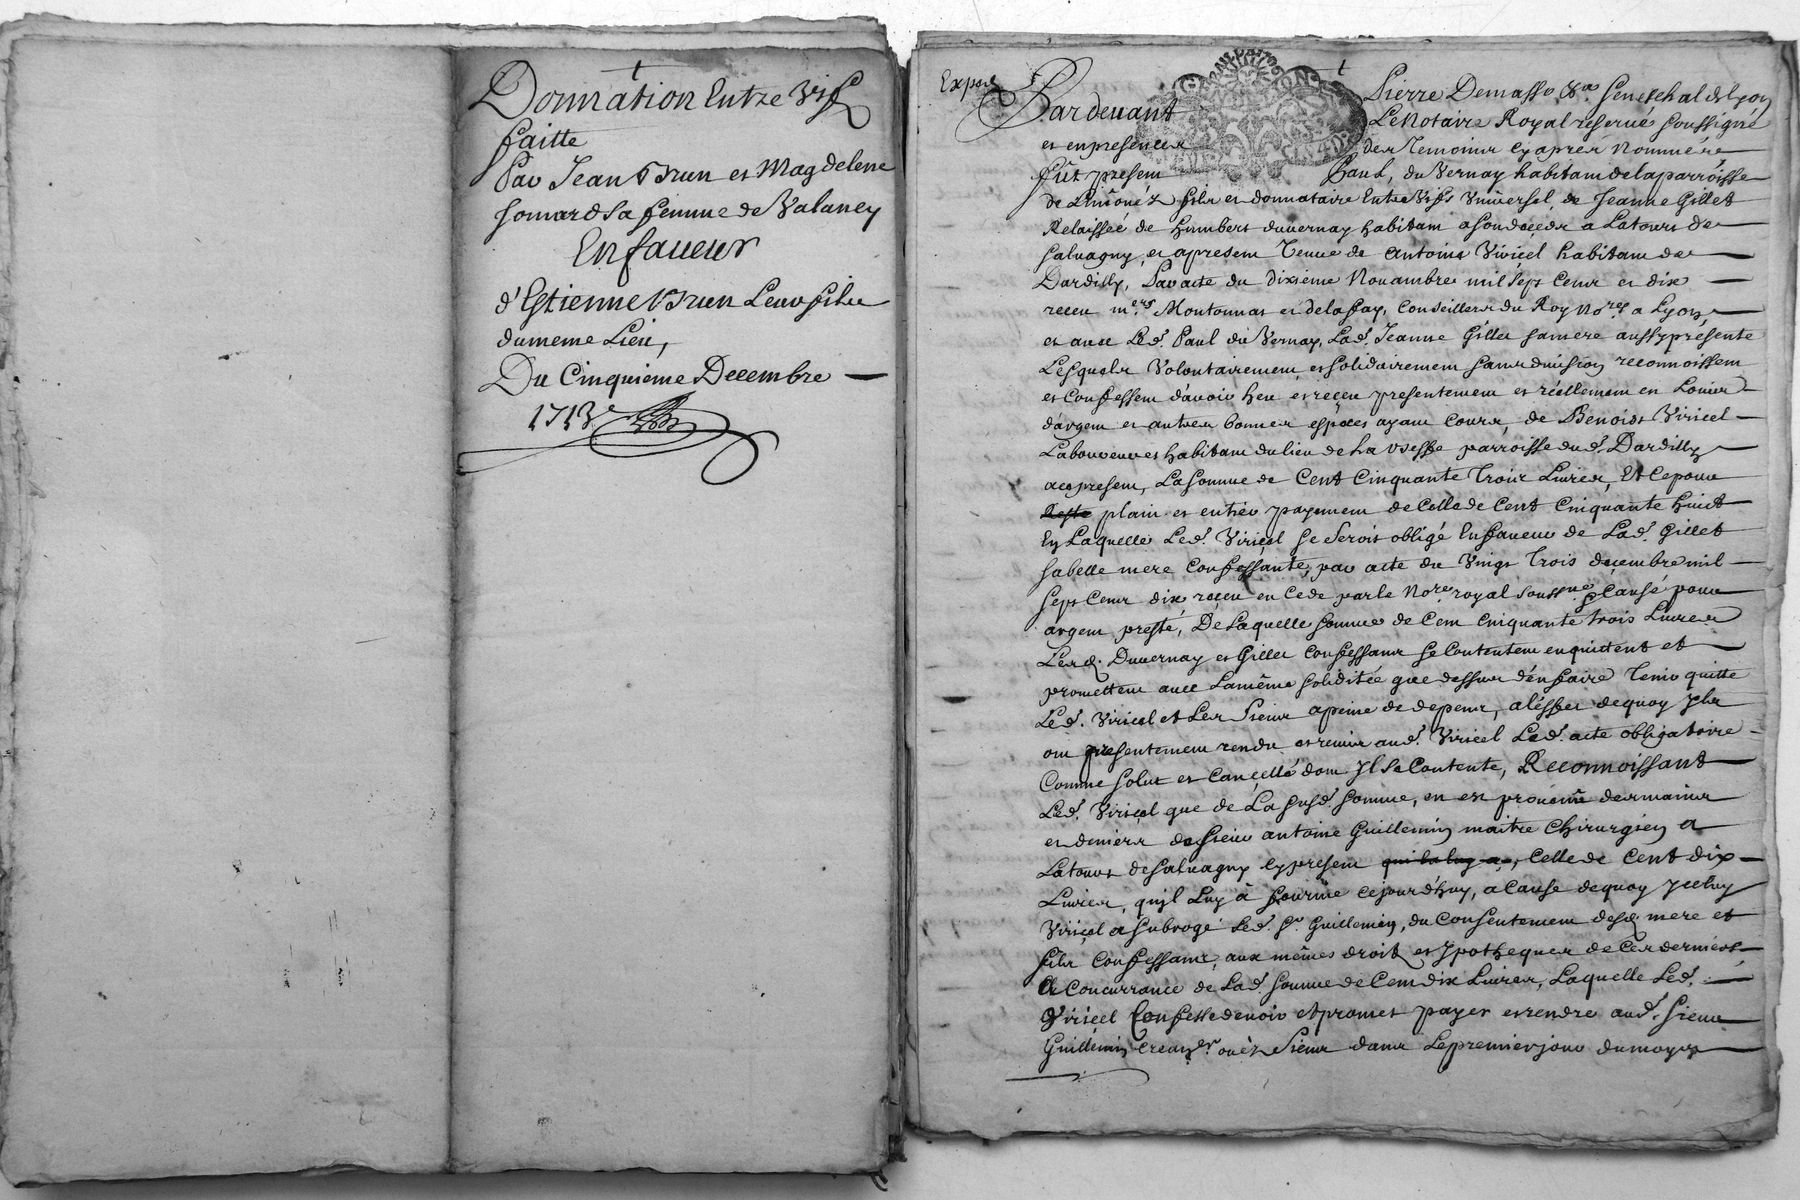 Donnation Entre Vifs
faitte
Par Jean Brun et Magdelene
Somard sa femme de Valancy
En faueur
d'Estienne Brun Leur fils
du meme Lieu,
Du Cinquieme Decembre
1713
Exped
Pardeuant Pierre Demasso &a Seneschal de Lyon
Le Notaire Royal reserué soussigné
et en presence des Temoins cy apres Nommés
fût present Paul du Vernay habitant de la parroisse
de Limônez fils et donnataire Entre Vifs Vniversel, de Jeanne Gillet
Relaissée de Humbert duvernay habitant a son deceds a Latour de
Saluagny, et a present Veuue de Antoine Viricel habitant de
Dardilly, Par acte du dixieme Nouambre mil sept Cent et dix
receu mers Montonnat et delafay, Conseillers du Roy Nores a Lyon,
et auec Led. Paul du Vernay, Lad. Jeanne Gillet sa mere aussy présente
Lesquels Volontairement et solidairement sans diuision reconnoissent
et Confessent d'avoir heu et receu presentement et réellement en Louis
d'argent et autres bonnes espèces ayant Cours, de Benoist Viricel
Laboureur et habitant du lieu de La parroisse dud. Dardilly
ace present, La somme de Cent Cinquante Trois Liures, Et Ce pour
Reste plain et entier payement de Celle de Cent Cinquante huit
En Laquelle Led. Viricel se seroit obligé En faueur de Lad. Gillet
sa belle mere Confessante, par acte du Vingt Trois decembre mil
sept Cent dix receu en Cede par le Nore royal soussné Causé pour
argent presté, De Laquelle somme de Cent Cinquante trois Liures
Lesd. Duvernay et Gillet Confessants se Contentent en quittent et
promettent auec La même solidité que dessus d'en faire Tenir quitte
Led. Viricel et Les siens a peine de depens, a l'effet de quoy Ils
ont presentement rendu et remis aud. Viricel Led. acte obligatoire
Comme solut et Cancellé dont Il se Contente, Reconnoissant
Led. Viricel que de La susd. somme, en est prouenue des mains
et deniers de sieur antoine Guillemin maitre Chirurgien a
Latour de Saluagny cy present qui la luy a, Celle de Cent dix
Liures, qu'jl Luy à fournie cejourd'huy, a Cause de quoy yceluy
Viricel a subrogé Led. Sr Guillemin, du Consentement desd. mere et
fils Confessants, aux mêmes droits et ypotheques de Ces derniers
A Concurrance de Lad. somme de Cent dix Liures, Laquelle Led.
Viricel Confesse deuoir et promet payer et rendre aud. sieur
Guillemin creancr. ou ez siens dans Le premier jour du moys